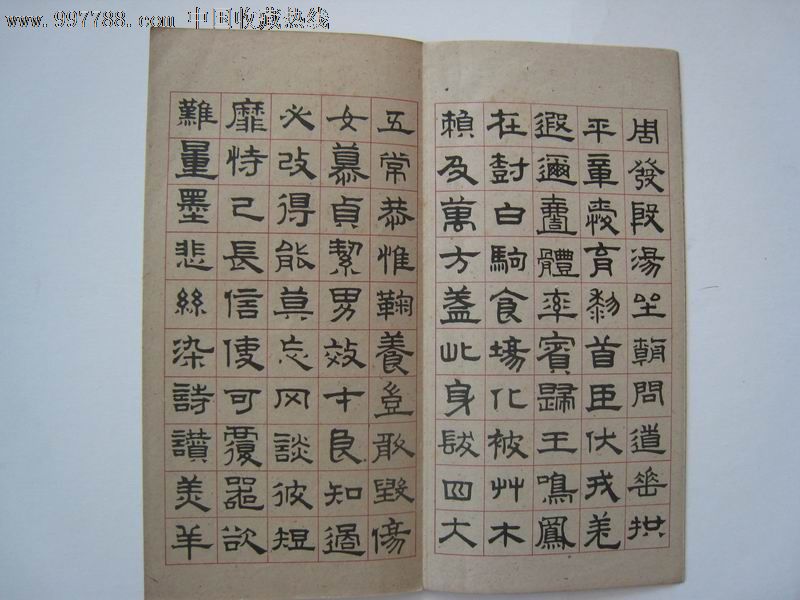 www.997788.com 中国收藏热线
周發殷湯坐朝問道垂拱
平章愛育黎首臣伏戎羌
遐邇壹體率賓歸王鳴鳳
在尌白駒食場化被艸木
賴及萬方蓋此身髮四大
五常恭惟鞠養豈敢毀傷
女慕貞絜男效才良知過
必改得能莫忘罔談彼短
靡恃己長信使可覆器欲
難量墨悲絲染詩讚羔羊